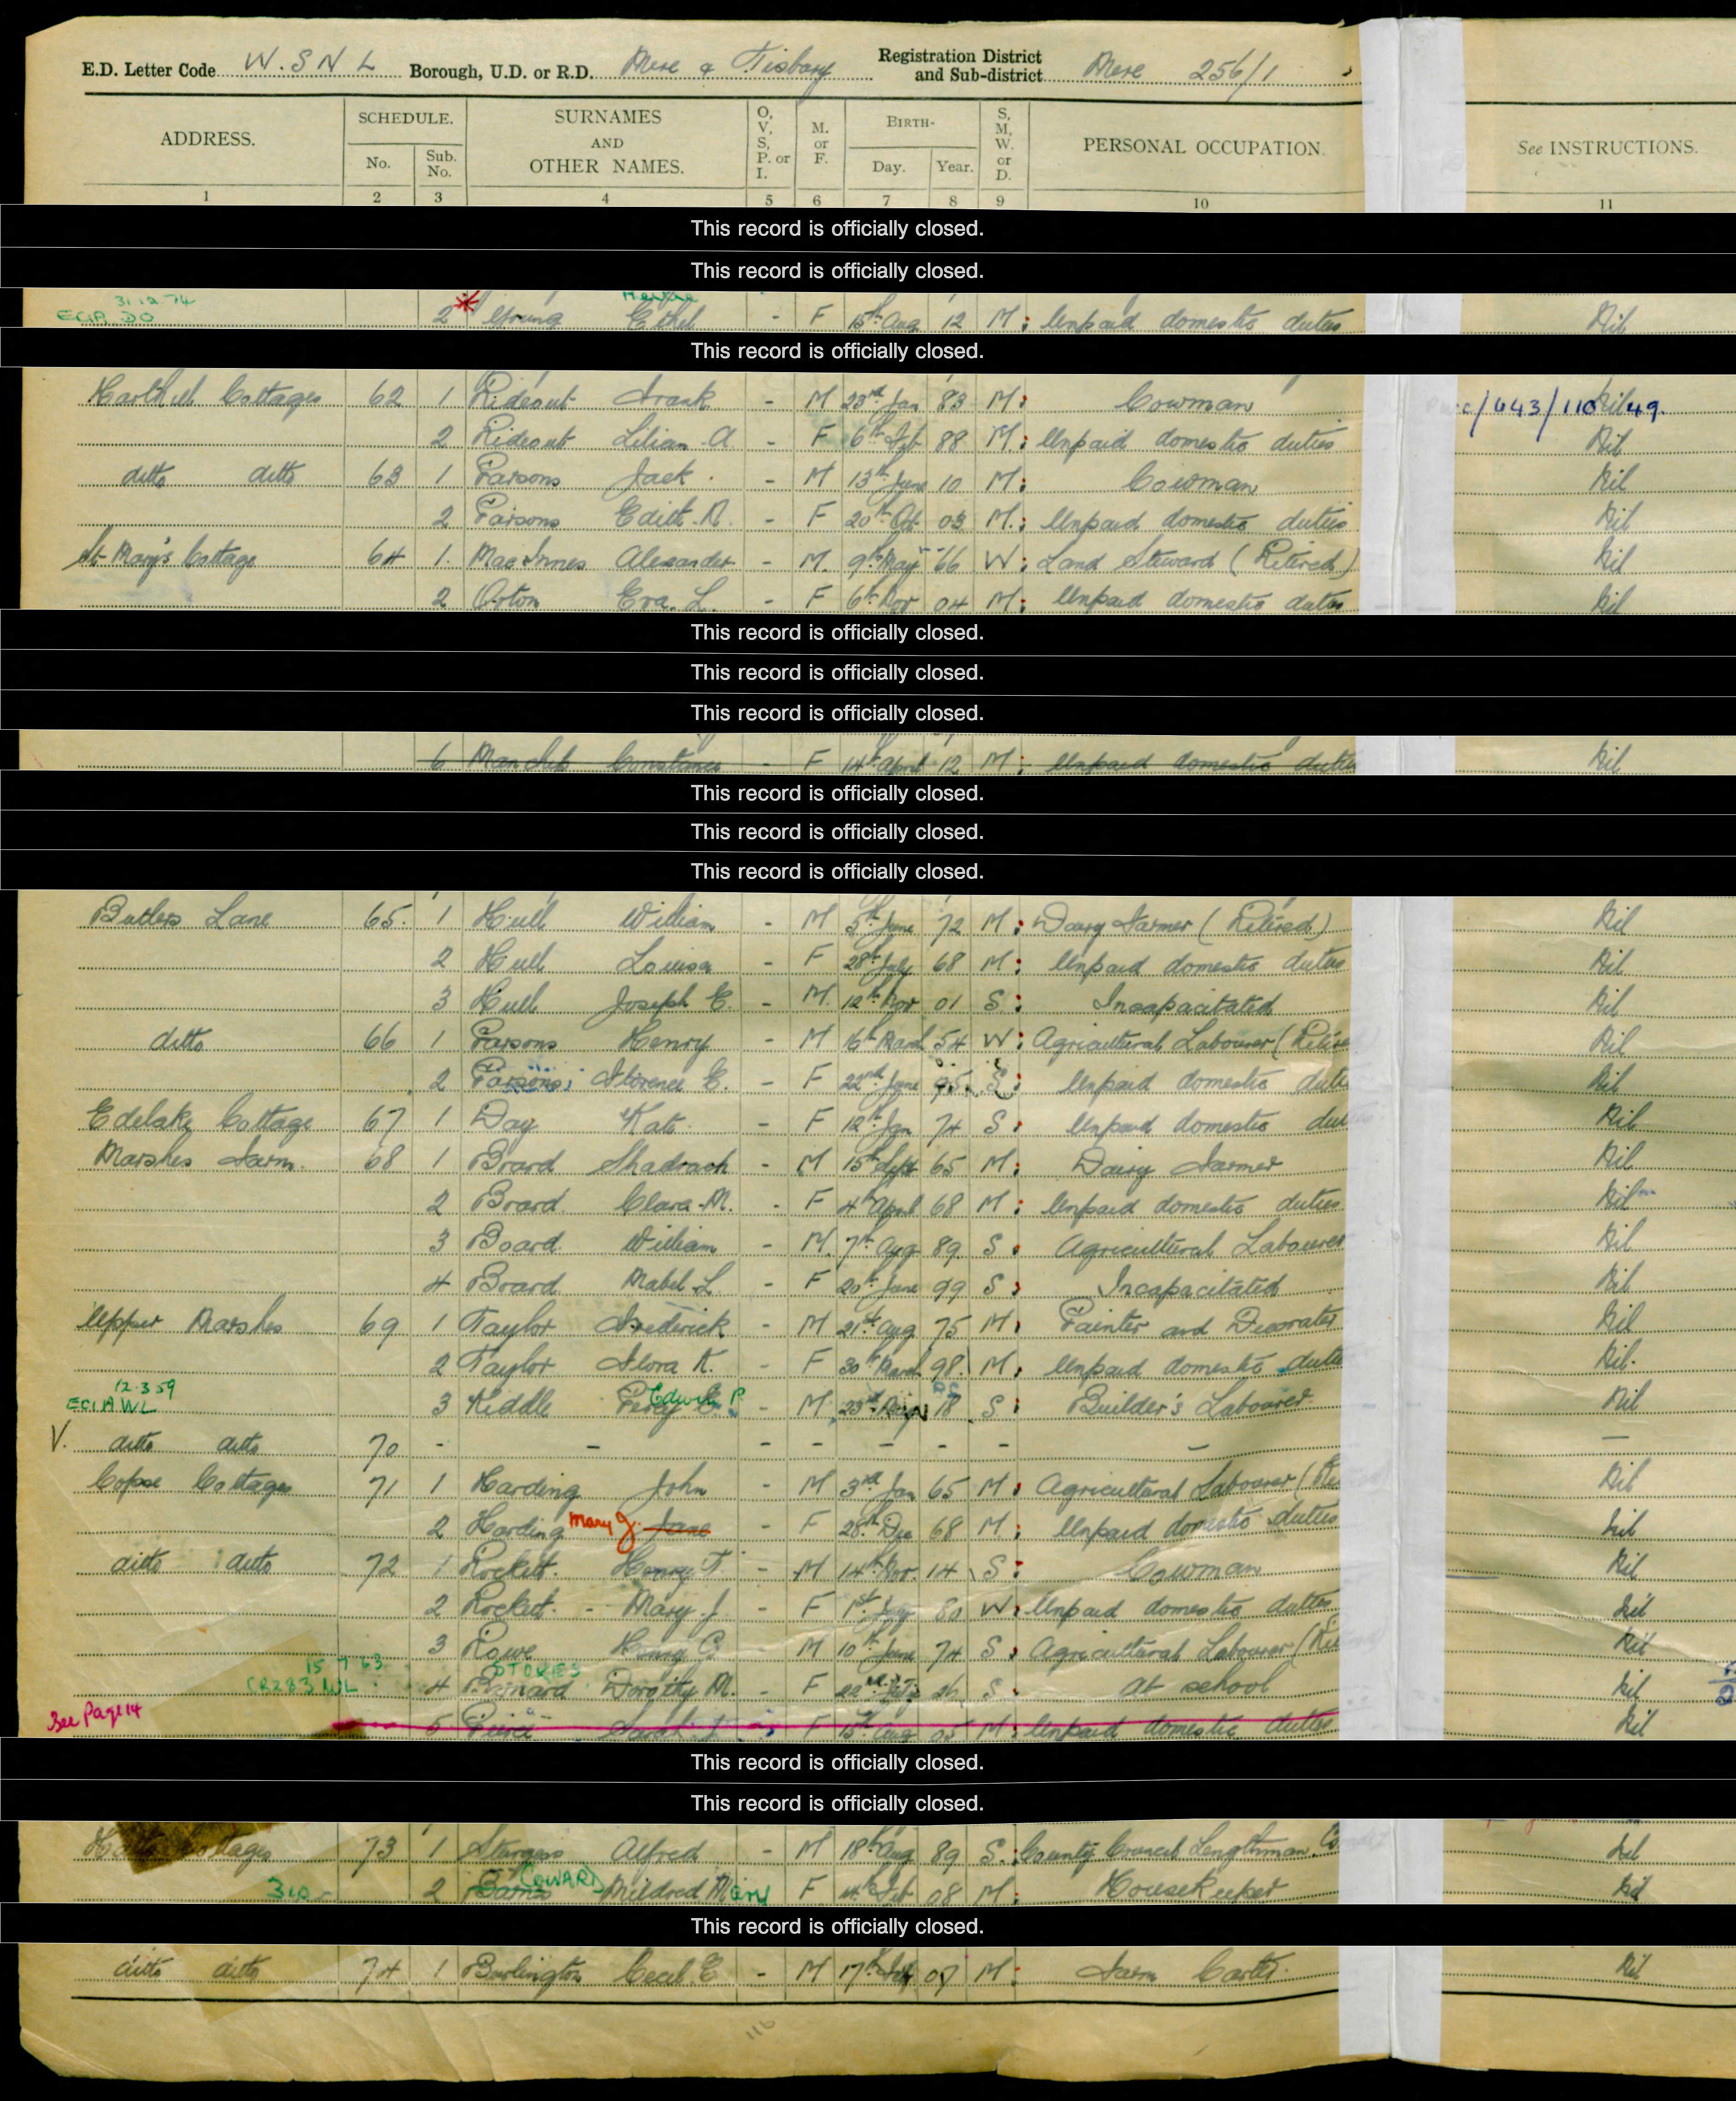 E.D. Letter Code W.S N L Borough, U.D. or R.D. Mere & Tisbury Registration District and Sub-district Mere 256/1
ADDRESS. SCHEDULE. No. Sub. No. SURNAMES AND OTHER NAMES. O, V, S, P. or I. M. or F. BIRTH- Day. Year. S, M, W. or D. PERSONAL OCCUPATION. See INSTRUCTIONS.
1 2 3 4 5 6 7 8 9 10 11
This record is officially closed.
This record is officially closed.
31.12.74
2 Young Ethel - F 15th Aug 12 M: Unpaid domestic duties Nil
This record is officially closed.
Cottages 62 1 Rideout Frank - M 23rd Jan 83 M: Cowman Nil /643/110 49.
2 Rideout Lilian A - F 6th 88 M: Unpaid domestic duties Nil
ditto ditto 63 1 Parsons Jack - M 13th June 10 M: Cowman Nil
2 Parsons Edith - F 20th Oct 03 M: Unpaid domestic duties Nil
St Mary's Cottage 64 1. MacInnes Alexander - M. 9th May 66 W: Land Steward (Retired) Nil
2 Orton Eva L. - F 6th Nov 04 M: Unpaid domestic duties Nil
This record is officially closed.
This record is officially closed.
This record is officially closed.
6 Constance - F 14th April 12 M: Unpaid domestic duties Nil
This record is officially closed.
This record is officially closed.
This record is officially closed.
Butlers Lane 65. 1 Hull William - M 5th June 72 M: Dairy Farmer (Retired) Nil
2 Hull Louisa - F 28th July 68 M: Unpaid domestic duties Nil
3 Hull Joseph E. - M. 12th Nov 01 S: Incapacitated Nil
ditto 66 1 Parsons Henry - M 16th March 54 W: Agricultural Labourer (Retire Nil
2 Parsons Florence E. - F 22nd June 95 S: Unpaid domestic duti Nil
Edelake Cottage 67 1 Day Kate - F 12th Jan 74 S: Unpaid domestic Nil
Marshes Farm. 68 1 Board Shadrach - M 15th Sept 65 M: Dairy Farmer Nil
2 Board Clara M. - F 4th April 68 M: Unpaid domestic duties Nil
3 Board William - M. 7th Aug 89 S: Agricultural Labourer Nil
4 Board Mabel L. - F 20th June 99 S: Incapacitated Nil
Upper Marshes 69 1 Taylor Frederick - M 21st Aug 75 M: Painter and Decorator Nil
2 Taylor Flora K. - F 30th March 98. M. Unpaid domestic dutie Nil.
12.3.59
3 Kiddle Percy E. Edwin P - M 23rd 18 S: Builder's Labourer Nil
V. ditto ditto 70 - - - - - - - - -
Copse Cottages 71 1 Harding John - M 3rd Jan 65 M: Agricultural Labourer Nil
2 Harding Mary J. Jane - F 28th Dec 68 M: Unpaid domestic duties Nil
ditto ditto 72 1 Rockett. Henry - M 14th Nov. 14 S: Cowman Nil
2 Rockett. - Mary J - F 1st 80 W: Unpaid domestic duties Nil
3 Rowe Henry M 10th June 74 S: Agricultural Labourer Nil
15 7 63 STOKES
4 Barnard Dorothy M. - F 22nd 26 S. At school Nil
See Page 14 5 Sarah F 15th Aug 05 M: Unpaid domestic duties Nil
This record is officially closed.
This record is officially closed.
Cottages 73 1 Sturgess Alfred - M 18th Aug 89 S. County Council Lengthman. Nil
COWARD
2 Mildred Mary F Feb 08 M: Housekeeper Nil
This record is officially closed.
ditto ditto 74 1 Burlington Cecil E - M 17th 07 M: Farm Carter Nil
116